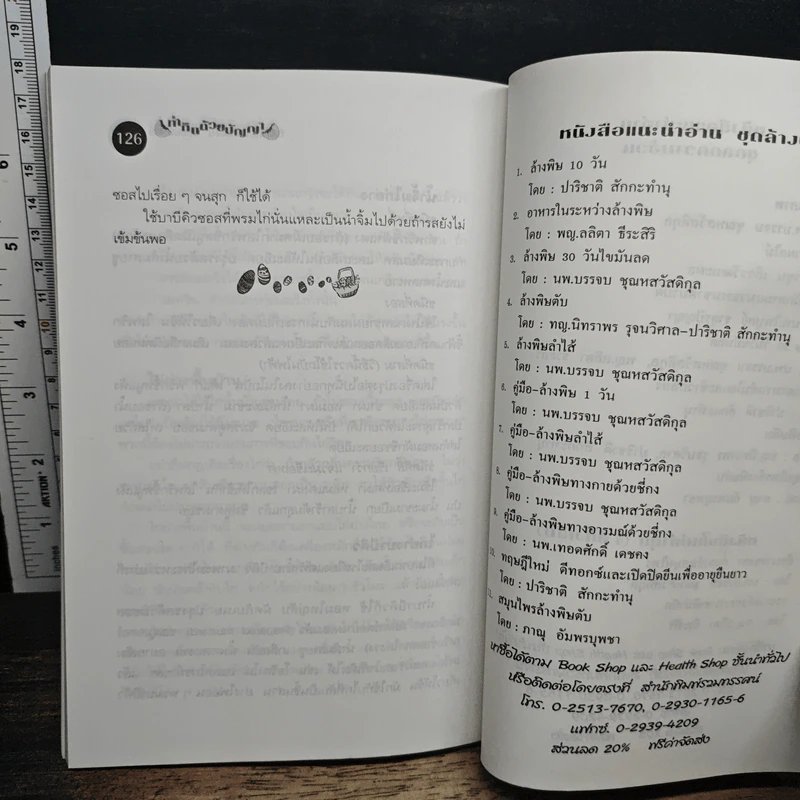 126
ทำกินด้วยปัญญา
ซอสไปเรื่อย ๆ จนสุก ก็ใช้ได้
ใช้บาบีคิวซอสที่พรมไก่นั่นแหละเป็นน้ำจิ้มไปด้วยถ้ารสยังไม่
เข้มข้นพอ
หนังสือแนะนำอ่าน ชุดล้าง
1. ล้างพิษ 10 วัน
โดย : ปาริชาติ สักกะทำนุ
2. อาหารในระหว่างล้างพิษ
โดย : พญ.ลลิตา ธีระสิริ
3. ล้างพิษ 30 วันไขมันลด
โดย : นพ.บรรจบ ชุณหสวัสดิกุล
4. ล้างพิษตับ
โดย : ทญ.นิทราพร รุจนวิศาล-ปาริชาติ สักกะทำนุ
5. ล้างพิษลำไส้
โดย : นพ.บรรจบ ชุณหสวัสดิกุล
6. คู่มือ-ล้างพิษ 1 วัน
โดย : นพ.บรรจบ ชุณหสวัสดิกุล
7. คู่มือ-ล้างพิษลำไส้
โดย : นพ.บรรจบ ชุณหสวัสดิกุล
8. คู่มือ-ล้างพิษทางกายด้วยชี่กง
โดย : นพ.บรรจบ ชุณหสวัสดิกุล
9. คู่มือ-ล้างพิษทางอารมณ์ด้วยชี่กง
โดย : นพ.เทอดศักดิ์ เดชคง
10. ทฤษฎีใหม่ ดีทอกซ์และเปิดปิดยีนเพื่ออายุยืนยาว
โดย : ปาริชาติ สักกะทำนุ
11. สมุนไพรล้างพิษตับ
โดย : ภาณุ อัมพรบุพชา
หาซื้อได้ตาม Book Shop และ Health Shop ชั้นนำทั่วไป
หรือติดต่อโดยตรงที่ สำนักพิมพ์รวมทรรศน์
โทร. 0-2513-7670, 0-2930-1165-6
แฟกซ์. 0-2939-4209
ส่วนลด 20% ฟรีค่าจัดส่ง